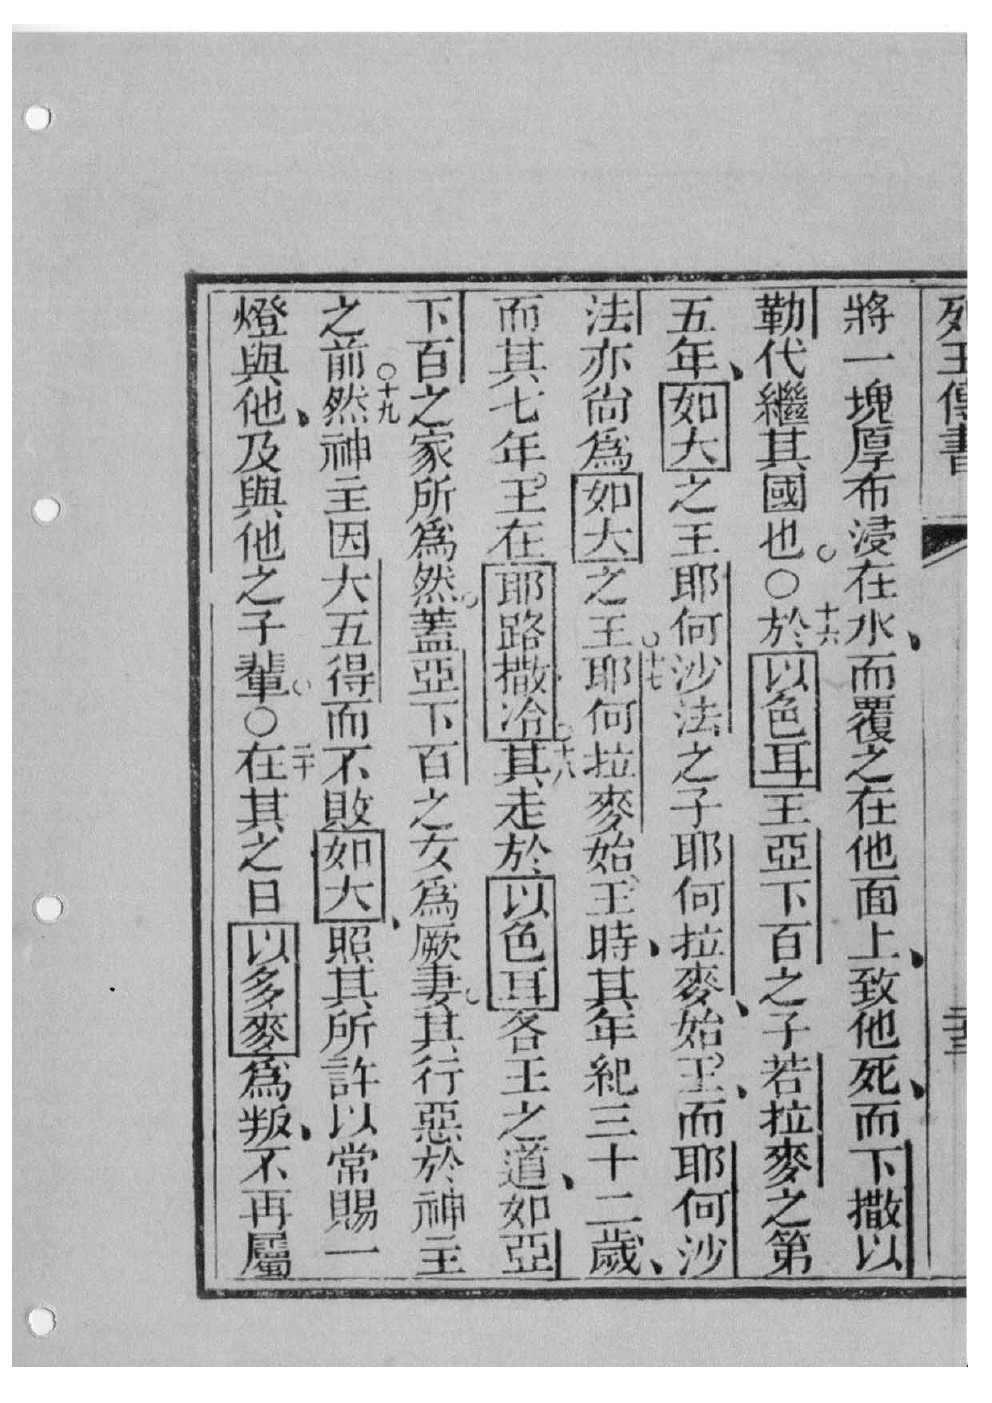 列王傳書
將一塊厚布浸在水、而覆之在他面上、致他死、而下撒以
勒代繼其國也。○十六於以色耳王亞下百之子若拉麥之第
五年、如大之王耶何沙法之子耶何拉麥、始王、而耶何沙
法亦尙爲如大之王。十七耶何拉麥始王時、其年紀三十二歲、
而其七年。王在耶路撒冷。十八其走於以色耳各王之道、如亞
下百之家所爲然。蓋亞下百之女爲厥妻。其行惡於神主
之前。十九然神主因大五得而不敗如大、照其所許以常賜一
燈與他、及與他之子輩。○二十在其之日以多麥爲叛、不再屬